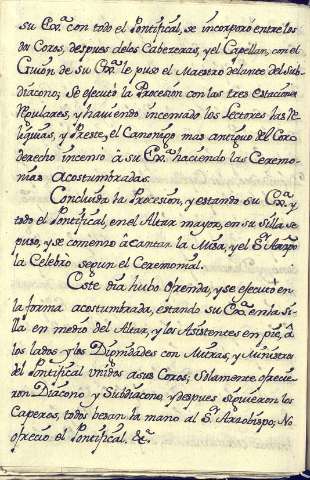 su Exª. con todo el Pontifical, se incorporó entre los
dos Coros, despues delos Cabezeras, y el Capellan, con el
Guión de su Exª. le puso el Maestro delante del Sub-
diacono; Se executó la Procesion con las tres estaciones
Regulares, y haviendo incensado los Lectores las Re-
liquias, y Preste, el Canonigo mas antiguo del Coro
derecho incensó à su Exª. haciendo las Ceremo-
nias acostumbradas.
Concluida la Procesion, y estando su Exª. y
todo el Pontifical, en el Altar mayor, en su Silla se
puso, y se comenzo à cantar la Misa, y el Sr. Arzpo
la Celebró segun el Ceremonial.
Este dia hubo ofrenda, y se executó en
la forma acostumbrada, estando su Exª. en la si-
lla en medio del Altar, y los Asistentes en pie, â
los lados y los Dignidades con Mitras, y Ministros
del Pontifical unidos a sus Coros; Solamente ofrecie-
ron Diacono, y Subdiacono, y despues siguieron los
Caperos, todos besan la mano al Sr. Arzobispo; No
ofrecio el Pontifical, &ª.